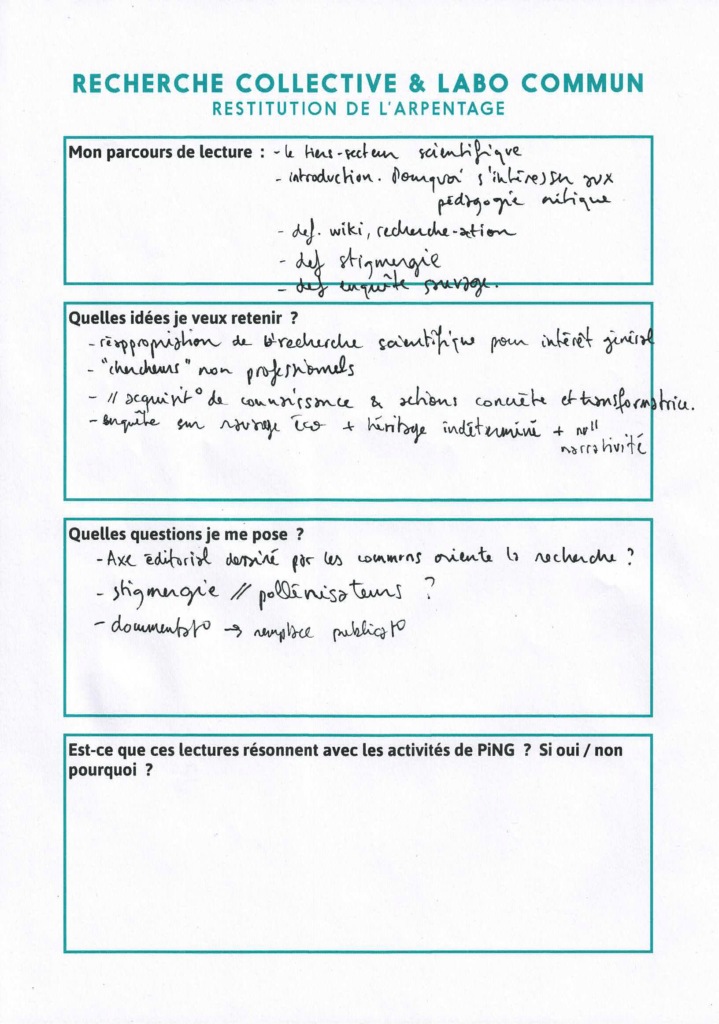 RECHERCHE COLLECTIVE & LABO COMMUN
RESTITUTION DE L'ARPENTAGE
Mon parcours de lecture : - le tiers-secteur scientifique
- introduction. Pourquoi s'intéresser aux
pédagogie critique
- def. wiki, recherche-action
- def stigmergie
- def enquête sauvage.
Quelles idées je veux retenir ?
- réappropriation de la recherche scientifique pour intérêt général
- "chercheurs" non professionnels
- // acquisit° de connaissance & actions concrète et transformatrice.
- enquête sur ravage éco + héritage indéterminé + nvll
narrativité
Quelles questions je me pose ?
- Axe éditorial dessiné par les communs oriente la recherche ?
- stigmergie // pollénisateurs ?
- documentat° → remplace publicat°
Est-ce que ces lectures résonnent avec les activités de PiNG ? Si oui / non
pourquoi ?